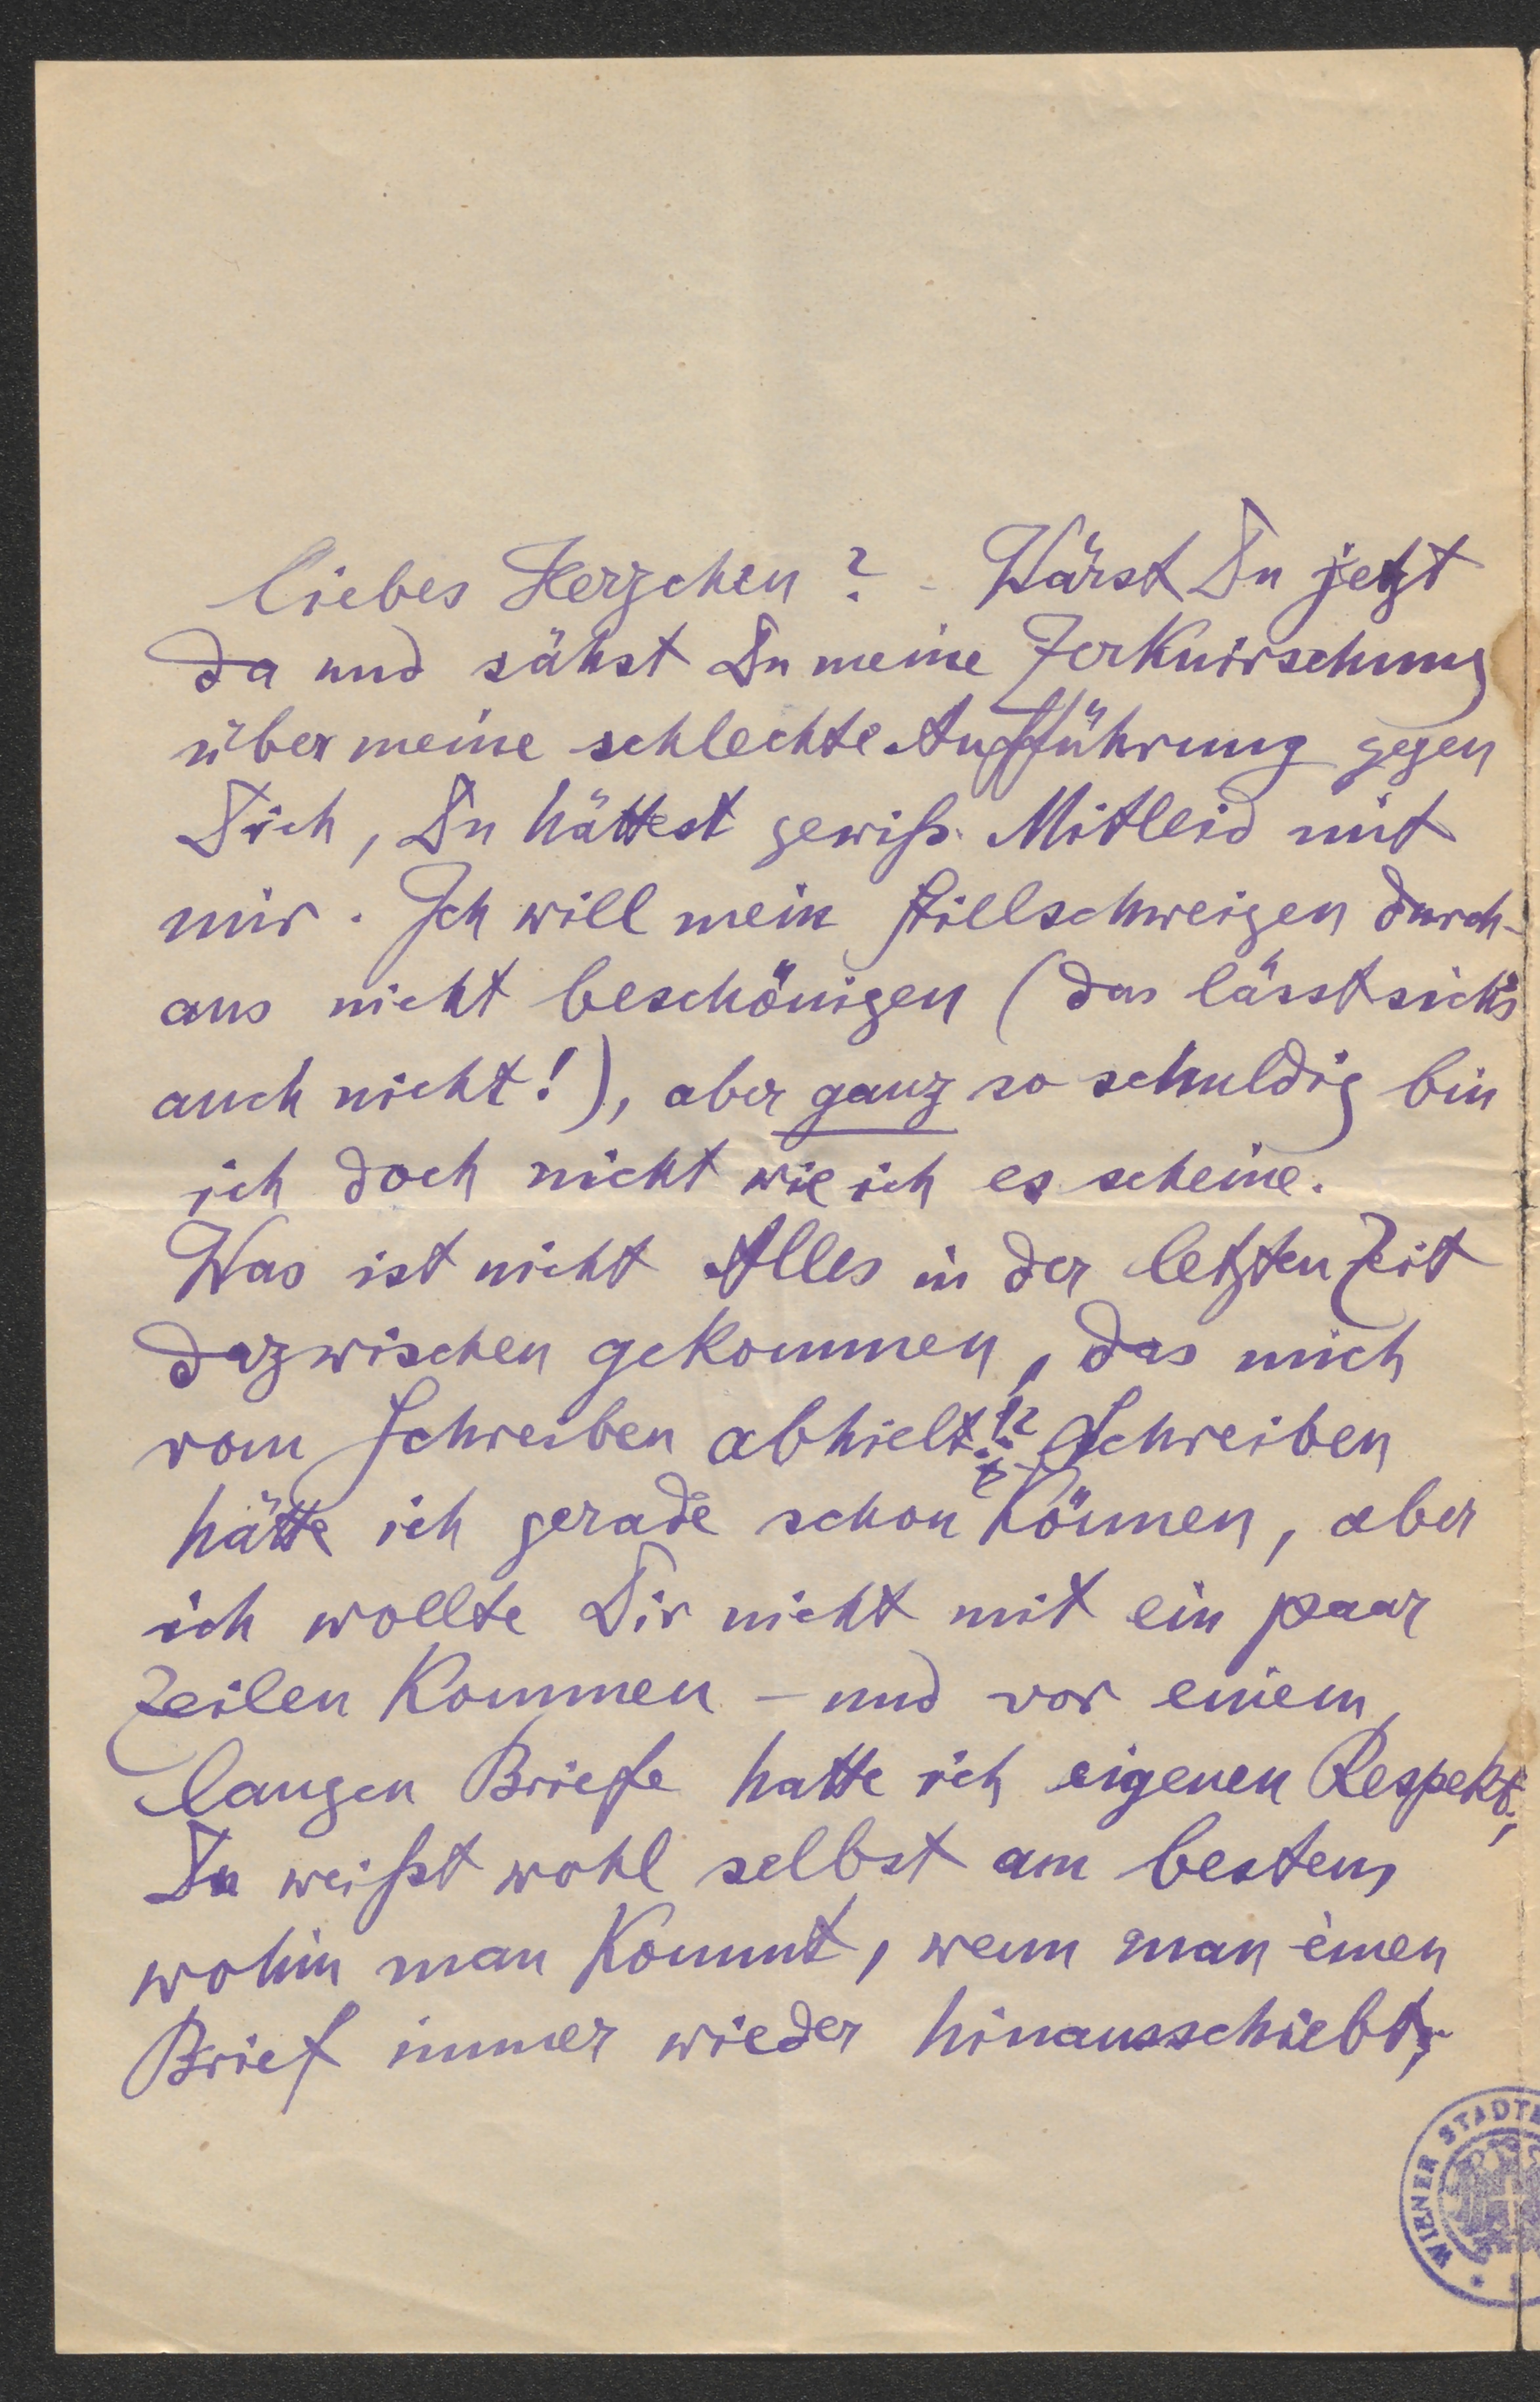 liebes Herzchen? – Wärst Du jetzt
da und sähst Du meine Zerknirschung
über meine schlechte Aufführung gegen
Dich, Du hättest gewiß Mitleid mit
mir. Ich will mein Stillschweigen durch-
aus nicht beschönigen (das lässt sich's
auch nicht!), aber ganz so schuldig bin
ich doch nicht wie ich es scheine.
Was ist nicht Alles in der letzten Zeit
dazwischen gekommen, das mich
vom Schreiben abhielt!? Schreiben
hätte ich gerade schon können, aber
ich wollte Dir nicht mit ein paar
Zeilen kommen – und vor einem
langen Briefe hatte ich eigenen Respekt;
Du weißt wohl selbst am besten,
wohin man kommt, wenn man einen
Brief immer wieder hinausschiebt;
WIENER STADT